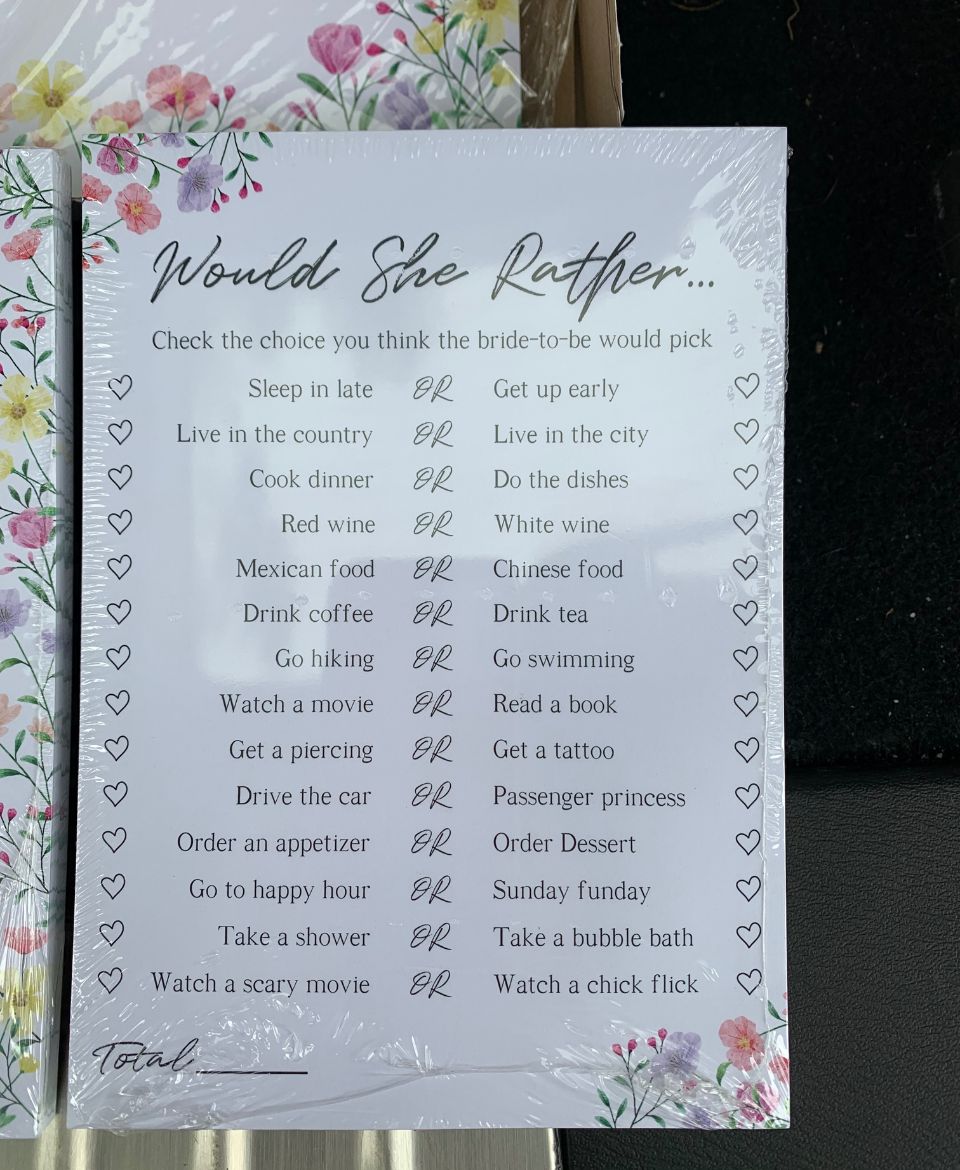 Would She Rather...
Check the choice you think the bride-to-be would pick
Sleep in late OR Get up early
Live in the country OR Live in the city
Cook dinner OR Do the dishes
Red wine OR White wine
Mexican food OR Chinese food
Drink coffee OR Drink tea
Go hiking OR Go swimming
Watch a movie OR Read a book
Get a piercing OR Get a tattoo
Drive the car OR Passenger princess
Order an appetizer OR Order Dessert
Go to happy hour OR Sunday funday
Take a shower OR Take a bubble bath
Watch a scary movie OR Watch a chick flick
Total